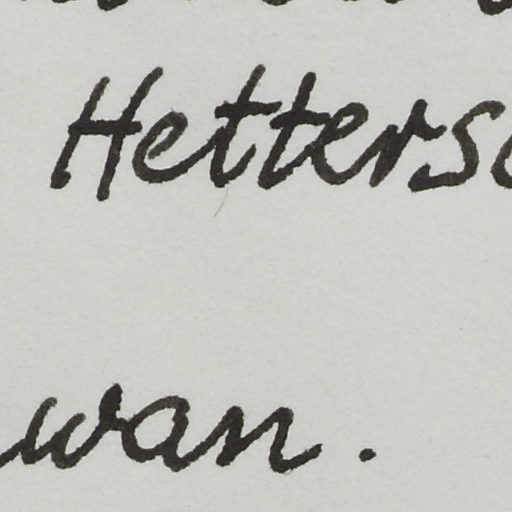 Hettersc
wan.